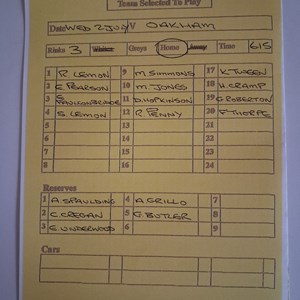 Team Selected To Play
Date WED 2 JULY V OAKHAM
Rinks 3 Whites Greys Home Away Time 6.15
1 R. LEMON 9 M. SIMMONS 17 K.
2 E. PEARSON 10 M. JONES 18 H. CRAMP
3 S. FAULCONBRIDGE 11 D. HOPKINSON 19 G. ROBERTON
4 S. LEMON 12 R. PENNY 20 F. THORPE
5 13 21
6 14 22
7 15 23
8 16 24
Reserves
1 A. SPAULDING 4 A. GRILLO 7
2 C. CREGAN 5 G. BUTLER 8
3 E. UNDERWOOD 6 9
Cars